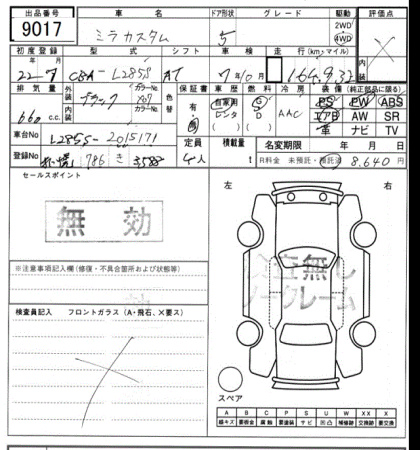 出品番号 車名 ドア形状 グレード 駆動 評価点
9017 ミラカスタム 5 2WD 4WD ×
初度登録 型式 シフト 車検 走行(km・マイル) 内装 外装
年 月 年 月
22-7 CBA-L285S AT 7/10
排気量 外装色 カラーNo. 内装色 カラーNo. 色替 保証書 車歴 燃料 冷房 装備(純正部品に限る)
660 c.c. ブラック X07 有 自家用 レンタ G D AAC PS PW ABS
エアB AW SR
革 ナビ TV
車台No L285S-2015171 定員 積載量 名変期限 年 月 日
登録No 786 き 3588 4人 t R料金 未預託・預託済 8,640円
セールスポイント 左 右
無効
検査無し
ノークレーム
※注意事項記入欄(修復・不具合箇所および状態等)
検査員記入 フロントガラス(A・飛石、×要ス)
スペア
A B C P S U W XX X
線キズ 要板金 腐触 要塗装 サビ 凹凸 補修跡 交換跡 要交換